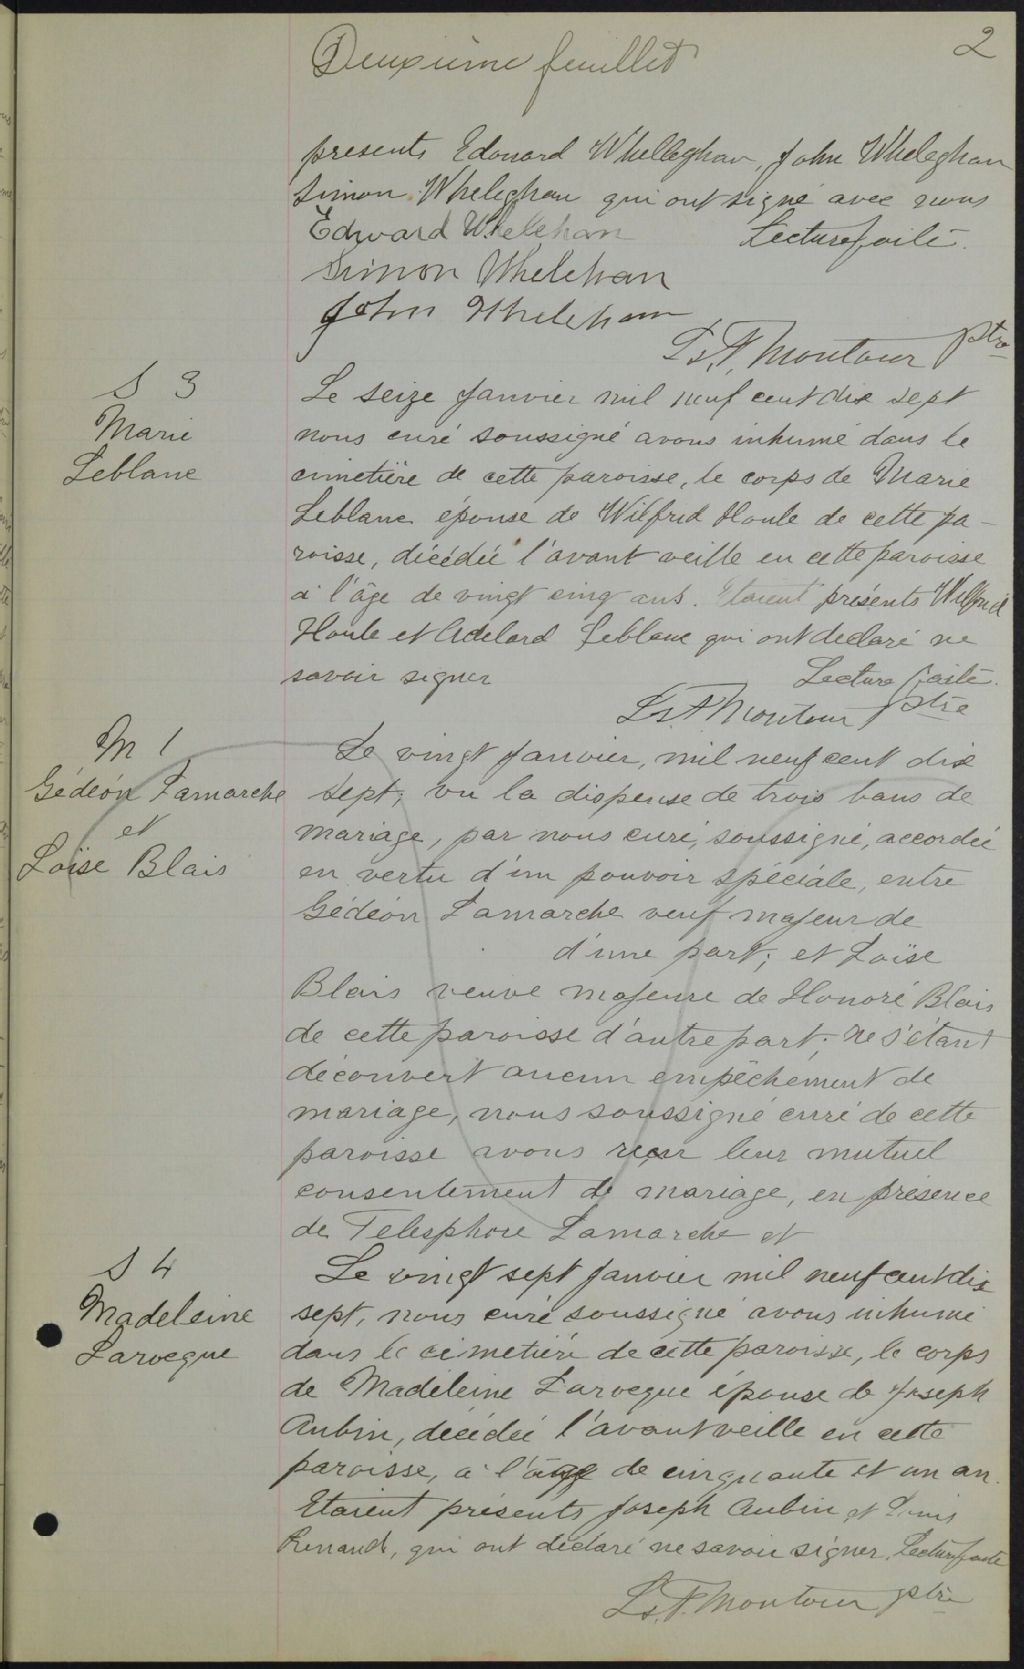 2
Deuxième feuillet
presents Edouard Whelleghan, John Wheleghan
Simon Wheleghan qui ont signé avec nous
Edward Whelehan Lecture faite.
Simon Whelehan
John Whelehan
Ls. A. Montour ptre
S 3
Marie
Leblanc
Le seize Janvier mil neuf cent dix sept
nous curé soussigné avons inhumé dans le
cimetière de cette paroisse, le corps de Marie
Leblanc épouse de Wilfrid Houle de cette pa-
roisse, décédée l'avant veille en cette paroisse
à l'âge de vingt cinq ans. Etaient présents Wilfrid
Houle et Adelard Leblanc qui ont declaré ne
savoir signer Lecture faite.
Ls. A. Montour ptre
M 1
Gédéon Lamarche
et
Loïse Blais
Le vingt Janvier, mil neuf cent dix
sept, vu la dispense de trois bans de
mariage, par nous curé, soussigné, accordée
en vertu d'un pouvoir spéciale, entre
Gédéon Lamarche veuf majeur de
d'une part; et Loïse
Blais veuve majeure de Honoré Blais
de cette paroisse d'autre part; ne s'étant
découvert aucun empêchement de
mariage, nous soussigné curé de cette
paroisse avons reçu leur mutuel
consentement de mariage, en présence
de Telesphore Lamarche et
S 4
Madeleine
Larocque
Le vingt sept Janvier mil neuf cent dix
sept, nous curé soussigné avons inhumé
dans le cimetière de cette paroisse, le corps
de Madeleine Larocque épouse de Joseph
Aubin, décédée l'avant veille en cette
paroisse, à l'âge de cinquante et un an.
Etaient présents Joseph Aubin et Louis
Renaud, qui ont déclaré ne savoir signer. Lecture faite
Ls. A. Montour ptre